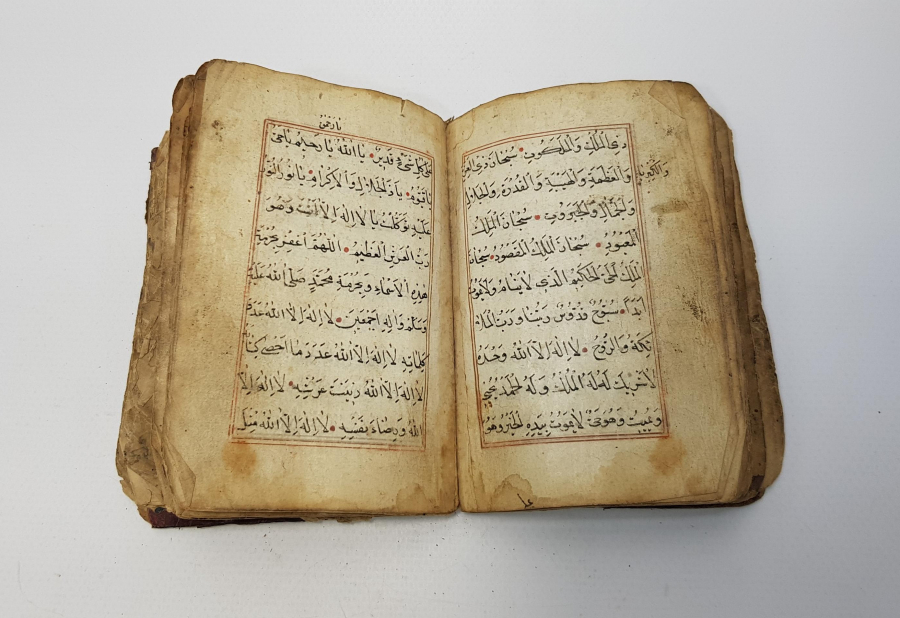 ذى الملك والملكوت سبحان ذى العزة
والعظمة والهيبة والقدرة والجلال
والكبرياء
والجمال والجبروت سبحان الملك
المعبود سبحان الملك المقصود سبحان
الملك الحى الحاكم الذى لا ينام ولا يموت
ابدا سبوح قدوس ربنا ورب الملا
ئكة والروح لا اله الا الله وحده
لا شريك له له الملك وله الحمد يحيى
ويميت وهو حى لا يموت بيده الخير وهو
على
يا رحمن
على كل شئ قدير يا الله يا رحيم يا حى
يا قيوم يا ذا الجلال والاكرام يا نور النور
عليه توكلت يا لا اله الا انت وهو
رب العرش العظيم اللهم اغفر بحرمة
هذه الاسماء وبحرمة محمد صلى الله عليه
وسلم واله اجمعين لا اله الا الله عدد
كلماته لا اله الا الله عدد ما احصى كتابه
لا اله الا الله زينت عرشه لا اله الا
الله ورضاء نفسه لا اله الا الله